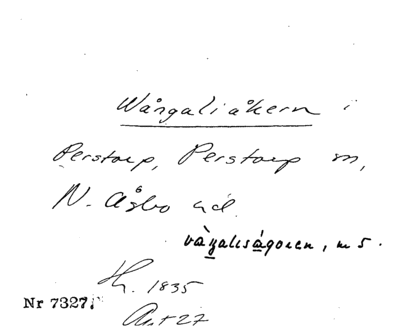 Wångaliåkern i
Perstorp, Perstorp sn,
N. Åsbo hd.
m 5.
H. 1835
Nr 7327.
Akt 27